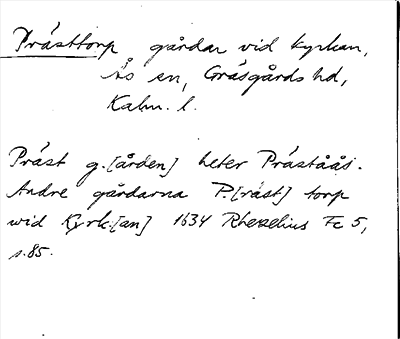 Prästtorp gårdar vid kyrkan,
Ås sn, Gräsgårds hd,
Kalm. l.
Präst g.[ården] heter Präståås.
Andre gårdarna P.[räst] torp
wid Kyrk.[an] 1634 Rhezelius Fc 5,
s. 85.